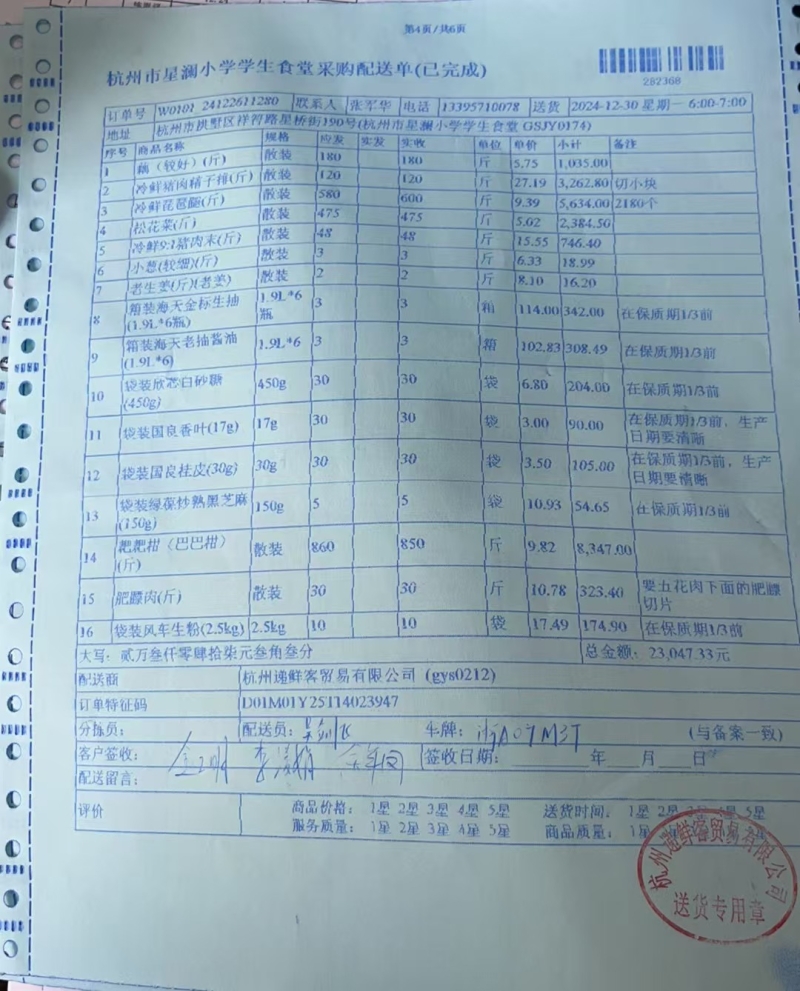 第4页/共6页
杭州市星澜小学学生食堂采购配送单(已完成)
282368
订单号 W0101 24122611280 联系人 张军华 电话 13395710078 送货 2024-12-30 星期一 6:00-7:00
地址 杭州市拱墅区祥符路星桥街190号(杭州市星澜小学学生食堂 GSJY0174)
序号 商品名称 规格 应发 实发 实收 单位 单价 小计 备注
1 藕（较好）(斤) 散装 180 180 斤 5.75 1,035.00
2 冷鲜猪肉精干排(斤) 散装 120 120 斤 27.19 3,262.80 切小块
3 冷鲜琵琶腿(斤) 散装 580 600 斤 9.39 5,634.00 2180个
4 松花菜(斤) 散装 475 475 斤 5.02 2,384.50
5 冷鲜9:1猪肉末(斤) 散装 48 48 斤 15.55 746.40
6 小葱(较细)(斤) 散装 3 3 斤 6.33 18.99
7 老生姜(斤)(老姜) 散装 2 2 斤 8.10 16.20
8 箱装海天金标生抽(1.9L*6瓶) 1.9L*6瓶 3 3 箱 114.00 342.00 在保质期1/3前
9 箱装海天老抽酱油(1.9L*6) 1.9L*6 3 3 箱 102.83 308.49 在保质期1/3前
10 袋装欣芯白砂糖(450g) 450g 30 30 袋 6.80 204.00 在保质期1/3前
11 袋装国良香叶(17g) 17g 30 30 袋 3.00 90.00 在保质期1/3前，生产日期要清晰
12 袋装国良桂皮(30g) 30g 30 30 袋 3.50 105.00 在保质期1/3前，生产日期要清晰
13 袋装绿葆炒熟黑芝麻(150g) 150g 5 5 袋 10.93 54.65 在保质期1/3前
14 耙耙柑（巴巴柑）(斤) 散装 860 850 斤 9.82 8,347.00
15 肥膘肉(斤) 散装 30 30 斤 10.78 323.40 要五花肉下面的肥膘切片
16 袋装风车生粉(2.5kg) 2.5kg 10 10 袋 17.49 174.90 在保质期1/3前
大写：贰万叁仟零肆拾柒元叁角叁分 总金额：23,047.33元
配送商 杭州速鲜客贸易有限公司 (gys0212)
订单特征码 D01M01Y25114023947
分拣员： 配送员： 车牌：浙A07M3T (与备案一致)
客户签收： 签收日期：______年___月___日
配送留言：
评价 商品价格：1星 2星 3星 4星 5星 送货时间：1星 2星 3星 4星 5星
服务质量：1星 2星 3星 4星 5星 商品质量：1星
杭州速鲜客贸易有限公司
送货专用章